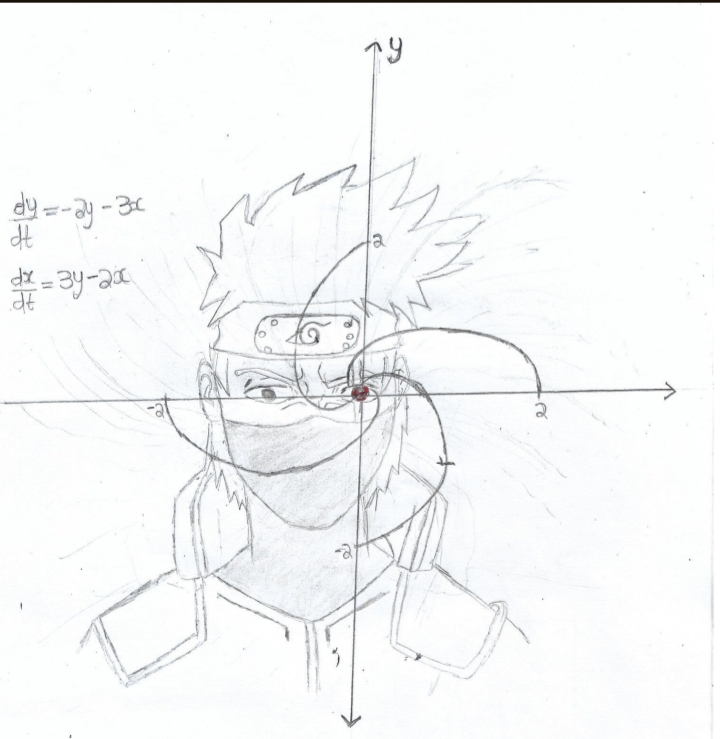 y
2
dy/dt = -2y - 3x
dx/dt = 3y - 2x
-2
2
-2